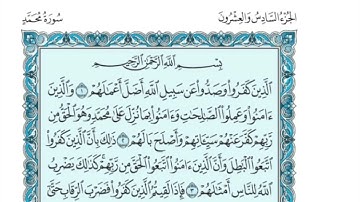 الجزء السادس والعشرون
سورة محمد
بِسْمِ اللَّهِ الرَّحْمَٰنِ الرَّحِيمِ
الَّذِينَ كَفَرُوا وَصَدُّوا عَن سَبِيلِ اللَّهِ أَضَلَّ أَعْمَٰلَهُمْ ١ وَالَّذِينَ
ءَامَنُوا وَعَمِلُوا الصَّٰلِحَٰتِ وَءَامَنُوا بِمَا نُزِّلَ عَلَىٰ مُحَمَّدٍ وَهُوَ الْحَقُّ مِن
رَّبِّهِمْ كَفَّرَ عَنْهُمْ سَيِّـَٔاتِهِمْ وَأَصْلَحَ بَالَهُمْ ٢ ذَٰلِكَ بِأَنَّ الَّذِينَ كَفَرُوا
اتَّبَعُوا الْبَٰطِلَ وَأَنَّ الَّذِينَ ءَامَنُوا اتَّبَعُوا الْحَقَّ مِن رَّبِّهِمْ كَذَٰلِكَ يَضْرِبُ
اللَّهُ لِلنَّاسِ أَمْثَٰلَهُمْ ٣ فَإِذَا لَقِيتُمُ الَّذِينَ كَفَرُوا فَضَرْبَ الرِّقَابِ حَتَّىٰ